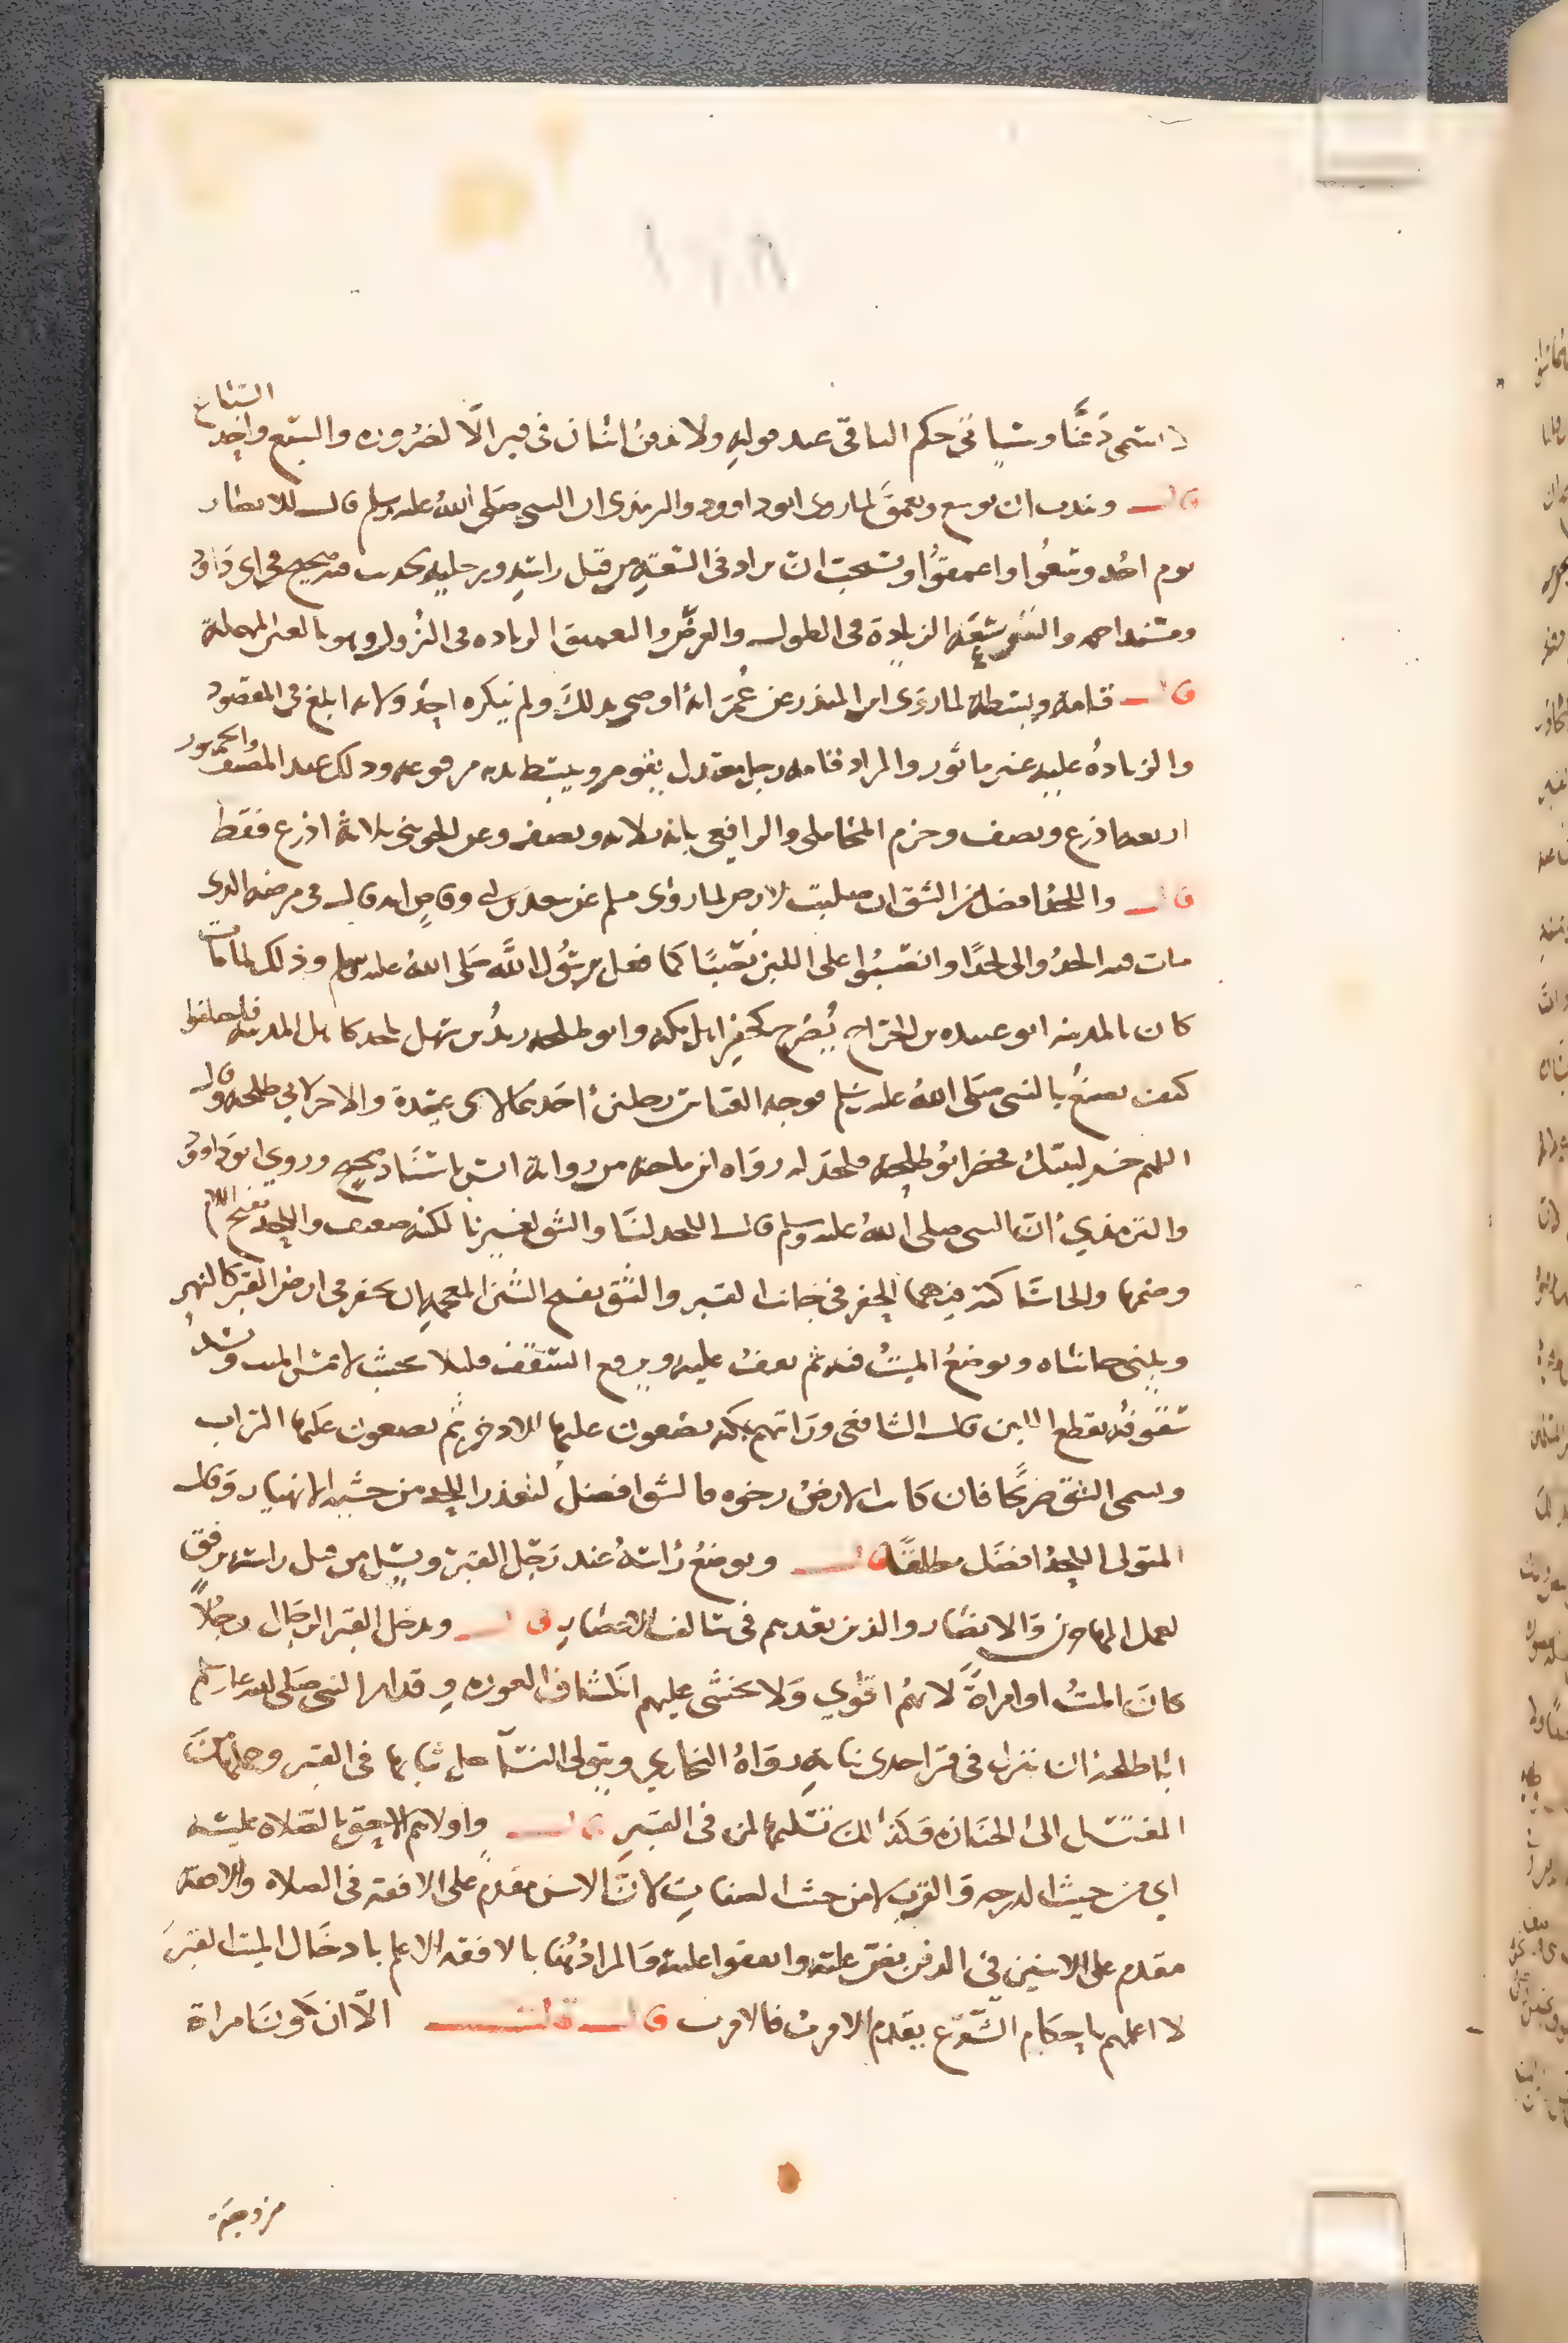 لا تسمى دفنا وسيأتي حكم الباقي عند قوله ولا يدفن اثنان في قبر الا لضرورة والسبع واحد السباع
قال ويندب ان يوسع ويعمق لما روى ابو داوود والترمذي ان النبي صلى الله عليه وسلم قال للانصار
يوم احد وسعوا واعمقوا ويستحب ان يزاد في السعة من قبل راسه ورجليه لحديث فيه صحيح في ابي داود
ومسند احمد والتوسعة الزيادة في الطول والعرض والتعميق الزيادة في النزول وهو بالعين المهملة
قال قامة وبسطة لما روى ابن المنذر عن عمر انه اوصى بذلك ولم ينكره احد ولانه ابلغ في المقصود
والزيادة عليه غير ماثور والمراد قامة رجل معتدل يقوم ويبسط يده مرفوعة وذلك عند المصنف والجمهور
اربعة اذرع ونصف وجزم المحاملي والرافعي بانه ثلاثة ونصف وعن الجويني ثلاثة اذرع فقط
قال واللحد افضل من الشق ان صلبت الارض لما روى مسلم عن سعد بن ابي وقاص انه قال في مرضه الذي
مات فيه الحدوا لي لحدا وانصبوا على اللبن نصبا كما فعل برسول الله صلى الله عليه وسلم وذلك لما مات
كان بالمدينة ابو عبيدة بن الجراح يضرح كحفر اهل مكة وابو طلحة زيد بن سهل يلحد كاهل المدينة فاختلفوا
كيف يصنع بالنبي صلى الله عليه وسلم فوجه العباس رجلين احدهما لابي عبيدة والاخر لابي طلحة وقال
اللهم خر لنبيك فحضر ابو طلحة فلحد له رواه ابن ماجة من رواية انس باسناد صحيح وروى ابو داوود
والترمذي ان النبي صلى الله عليه وسلم قال اللحد لنا والشق لغيرنا لكنه ضعيف واللحد بفتح اللام
وضمها والحا ساكنة فيهما الحفر في جانب القبر والشق بفتح الشين المعجمة ان يحفر في ارض القبر كالنهر
ويبنى جانباه ويوضع الميت فيه ثم يسقف عليه ويرفع السقف قليلا بحيث لا يمس الميت ويسد
شقوقه بقطع اللبن قال الشافعي ورايتهم بمكة يضعون عليها الاذخر ثم يضعون عليها التراب
وسمى الشق ضريحا فان كانت الارض رخوة فالشق افضل لتعذر اللحد من خشية الانهيار وقال
المتولي اللحد افضل مطلقا قال ويوضع راسه عند رجل القبر ويسل من قبل راسه برفق
لعمل المهاجرين والانصار والذين بعدهم في سالف الاعصار قال ويدخل القبر الرجال رجلا
كان الميت او امراة لانهم اقوى ولا يخشى عليهم انكشاف العورة وقد امر النبي صلى الله عليه وسلم
ابا طلحة ان ينزل في قبر احدى بناته رواه البخاري ويتولى النسا حل ثيابها في القبر وحملها من
المغتسل الى الجنازة وكذلك تسليمها لمن في القبر قال واولاهم الاحق بالصلاة عليه
اي من حيث الدرجة والقرب لا من حيث الصفات لان الاسن مقدم على الافقه في الصلاة والافقه
مقدم على الاسن في الدفن بنص عليه واتفقوا عليه والمراد هنا بالافقه الاعلم بادخال الميت القبر
لا اعلمهم باحكام الشرع يقدم الاقرب فالاقرب قال قلت الا ان تكون امراة
مزوجة